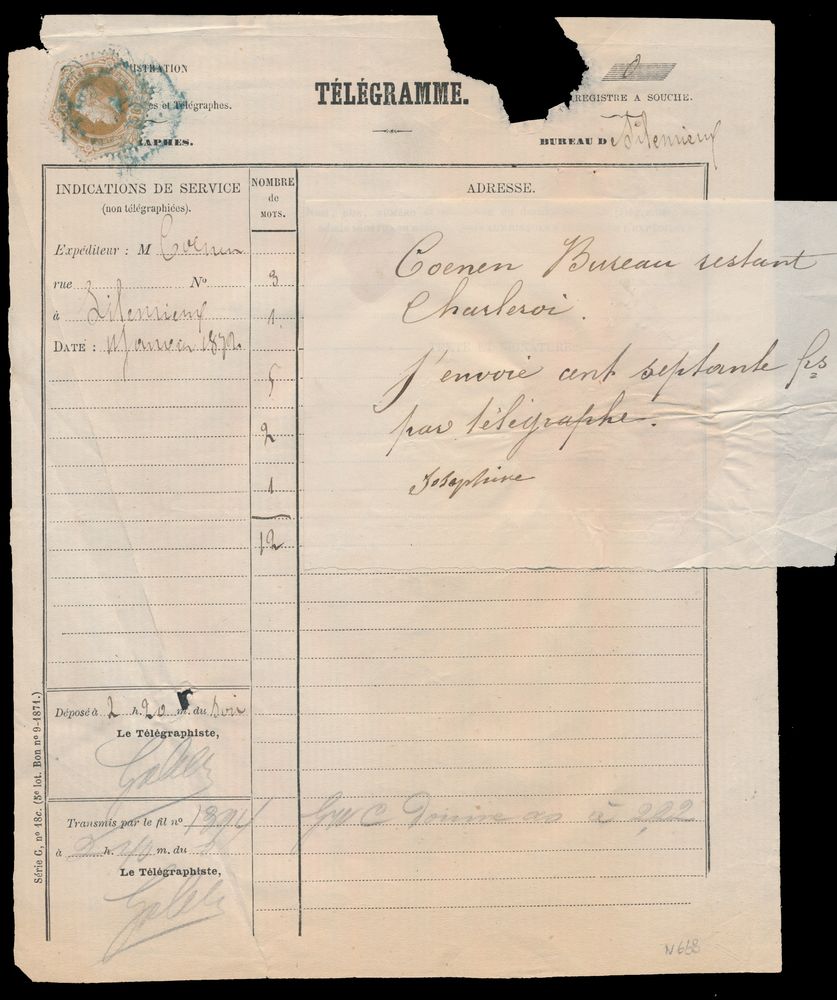 ISTRATION
es et Télégraphes.
RAPHES.
TÉLÉGRAMME.
REGISTRE A SOUCHE.
BUREAU D
INDICATIONS DE SERVICE
(non télégraphiées).
NOMBRE
de
MOTS.
ADRESSE.
Expéditeur : M Coenen
rue N° 3
à 1
DATE : Janvier 1872
5
2
1
12
Coenen Bureau restant
Charleroi.
J'envoie cent septante frs
par télégraphe.
Joséphine
Déposé à 2 h. 20 m. du soir
Le Télégraphiste,
Transmis par le fil n°
à h. m. du
Le Télégraphiste,
Série C, n° 18c. (5e lot. Bon n° 9-1871.)
N 668